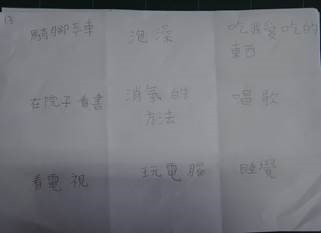 13
騎腳踏車
泡澡
吃我愛吃的
東西
在院子看書
消氣的
方法
唱歌
看電視
玩電腦
睡覺